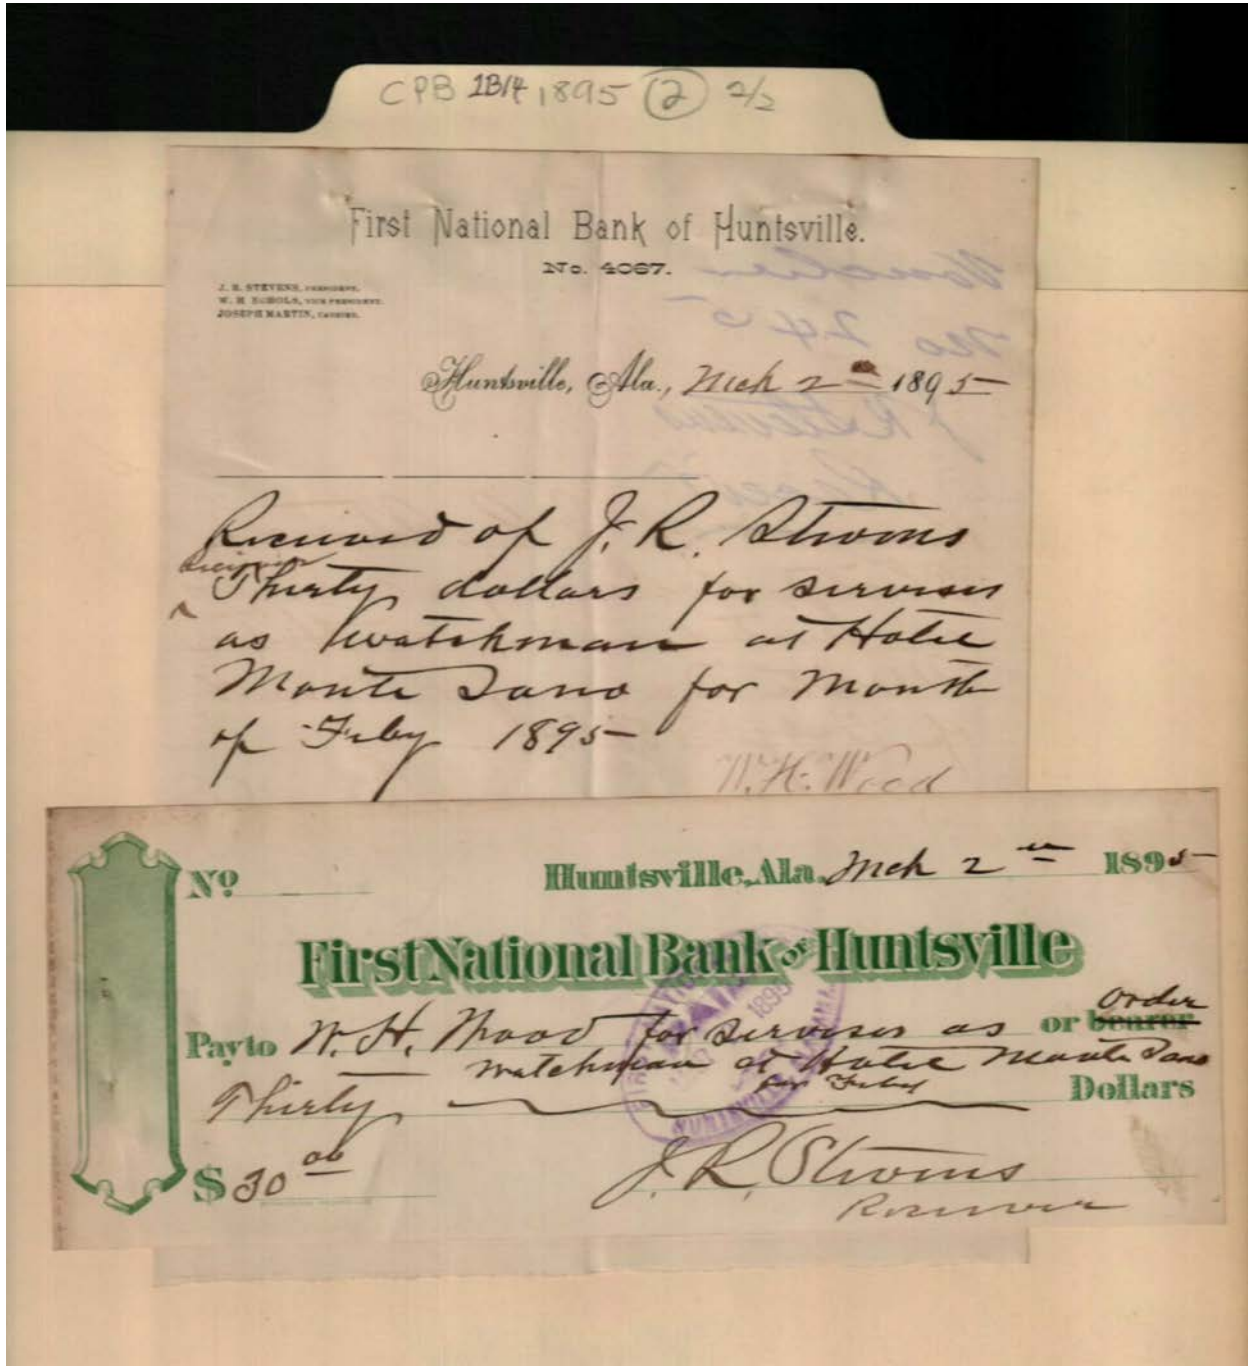 CPB 1B14 1895 (2) 2/2
First National Bank of Huntsville.
No. 4067.
J. R. STEVENS, PRESIDENT.
W. H. ECHOLS, VICE PRESIDENT.
JOSEPH MARTIN, CASHIER.
Huntsville, Ala., Mch 2nd 1895
Voucher
No 245
J R Stevens
Received of J. R. Stevens
Receiver
Thirty dollars for services
as watchman at Hotel
Monte Sano for Month
of Feby 1895
W. H. Wood
No
Huntsville, Ala. Mch 2nd 1895
First National Bank of Huntsville
Order
Pay to W. H. Wood for services as or bearer
watchman at Hotel Monte Sano
for Feby
Thirty Dollars
$ 30 00
J. R. Stevens
Receiver